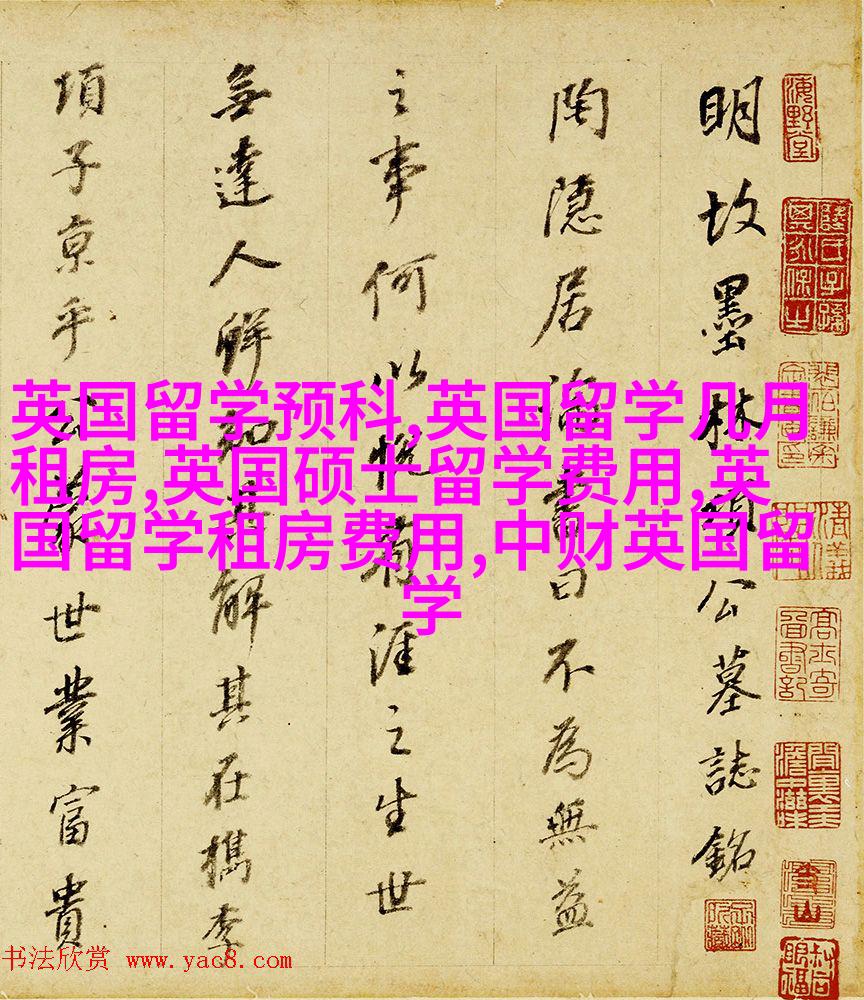 明故墨林項公墓誌銘
陶隱居書曰不為無益
之事何以悅有涯之生世
無達人鮮知其解其在檇李
項子京乎世業富貴
英国留学预科,英国留学几月
租房,英国硕士留学费用,英
国留学租房费用,中财英国留
学
海野堂
书法欣赏 www.yac8.com